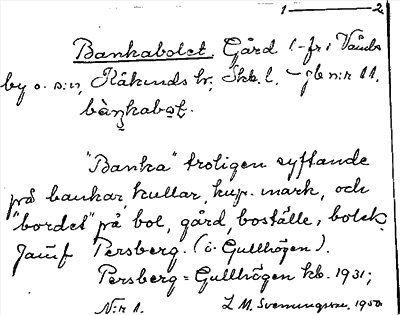 1 — 2
Bankabolet. Gård (-fr i Våmbs
by o. s:n, Kåkinds hr, Skb. l. – jb n:r 11.
bàŋkabo̱t.
"Banka" troligen syftande
på bankar, kullar, kup. mark, och
"bordet" på bol, gård, boställe, bolck
Jämf Persberg. (ö. Gullhögen).
Persberg = Gullhögen kb. 1931;
N:r 1. L M. Svenungsson. 1950